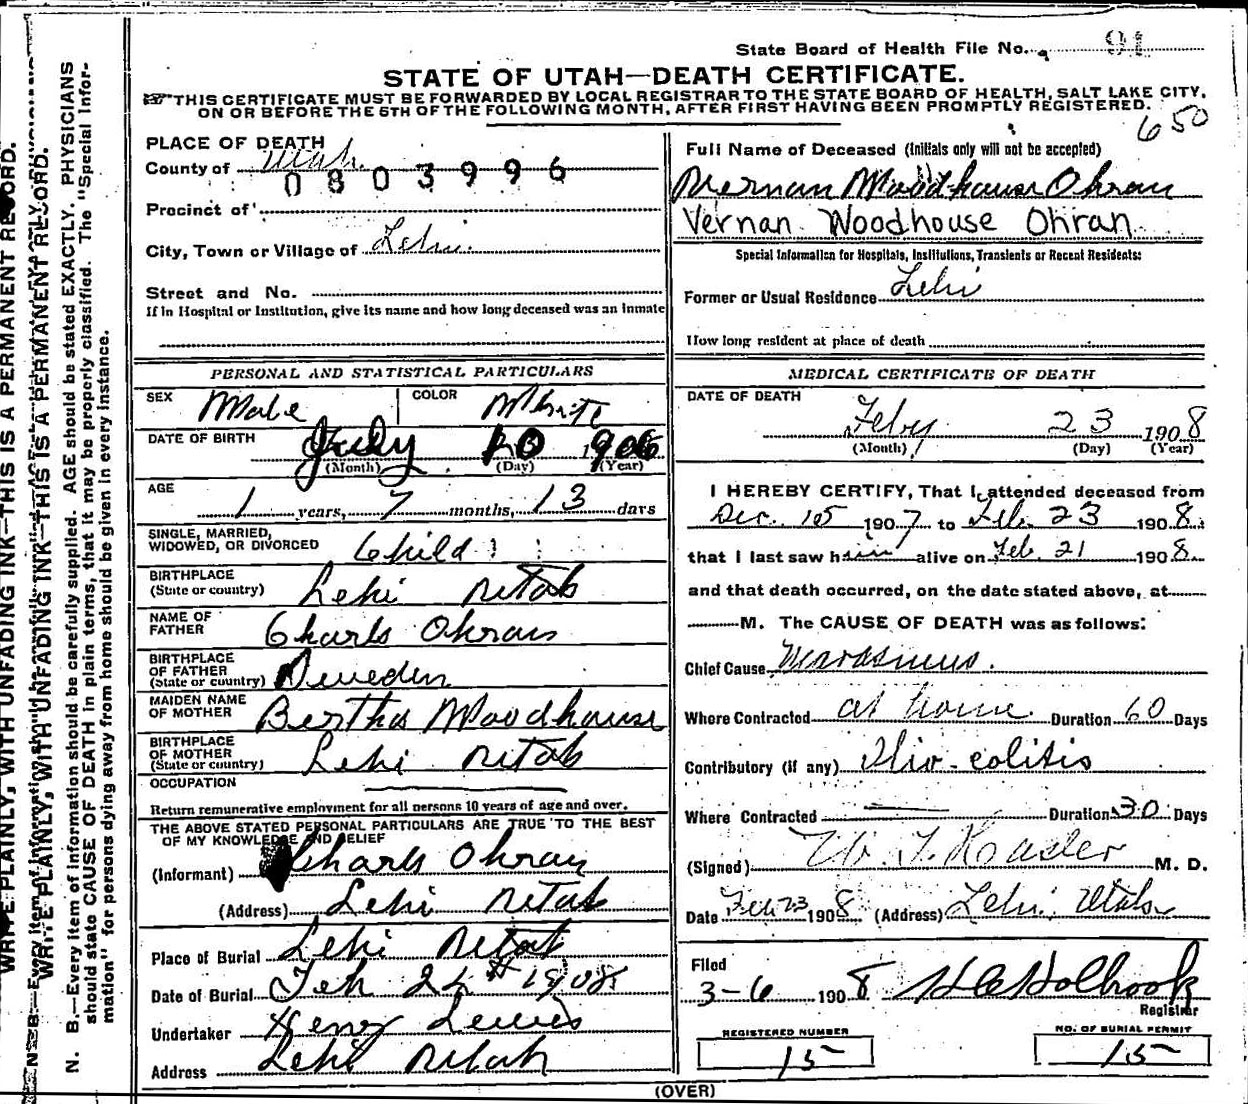 State Board of Health File No. 91
STATE OF UTAH—DEATH CERTIFICATE.
THIS CERTIFICATE MUST BE FORWARDED BY LOCAL REGISTRAR TO THE STATE BOARD OF HEALTH, SALT LAKE CITY,
ON OR BEFORE THE 5TH OF THE FOLLOWING MONTH, AFTER FIRST HAVING BEEN PROMPTLY REGISTERED.
650
PLACE OF DEATH
County of Utah
0803996
Precinct of
City, Town or Village of Lehi
Street and No.
If in Hospital or Institution, give its name and how long deceased was an inmate
Full Name of Deceased (Initials only will not be accepted)
Vernan Woodhouse Ohran
Vernan Woodhouse Ohran
Special Information for Hospitals, Institutions, Transients or Recent Residents:
Former or Usual Residence Lehi
How long resident at place of death
PERSONAL AND STATISTICAL PARTICULARS
SEX Male COLOR White
DATE OF BIRTH July 10 1906
(Month) (Day) (Year)
AGE
1 years, 7 months, 13 days
SINGLE, MARRIED,
WIDOWED, OR DIVORCED Child
BIRTHPLACE
(State or country) Lehi Utah
NAME OF
FATHER Charls Ohran
BIRTHPLACE
OF FATHER
(State or country) Sweden
MAIDEN NAME
OF MOTHER Bertha Woodhouse
BIRTHPLACE
OF MOTHER
(State or country) Lehi Utah
OCCUPATION
Return remunerative employment for all persons 10 years of age and over.
THE ABOVE STATED PERSONAL PARTICULARS ARE TRUE TO THE BEST
OF MY KNOWLEDGE AND BELIEF
(Informant) Charls Ohran
(Address) Lehi Utah
Place of Burial Lehi Utah
Date of Burial Feb 24 1908
Undertaker Henry Lewis
Address Lehi Utah
MEDICAL CERTIFICATE OF DEATH
DATE OF DEATH
Feby 23 1908
(Month) (Day) (Year)
I HEREBY CERTIFY, That I attended deceased from
Dec. 15 1907 to Feb. 23 1908.
that I last saw him alive on Feb. 21 1908.
and that death occurred, on the date stated above, at
M. The CAUSE OF DEATH was as follows:
Chief Cause Marasmus.
Where Contracted at home Duration 60 Days
Contributory (if any) Ilio-colitis
Where Contracted Duration 30 Days
(Signed) M. D.
Date Feb 23 1908 (Address) Lehi, Utah
Filed
3-6 1908 Holbrook
Registrar
REGISTERED NUMBER
15
NO. OF BURIAL PERMIT
15
(OVER)
N. B.—Every item of information should be carefully supplied. AGE should be stated EXACTLY. PHYSICIANS
should state CAUSE OF DEATH in plain terms, that it may be properly classified. The "Special Infor-
mation" for persons dying away from home should be given in every instance.
WRITE PLAINLY, WITH UNFADING INK—THIS IS A PERMANENT RECORD.
WRITE PLAINLY, WITH UNFADING INK—THIS IS A PERMANENT RECORD.